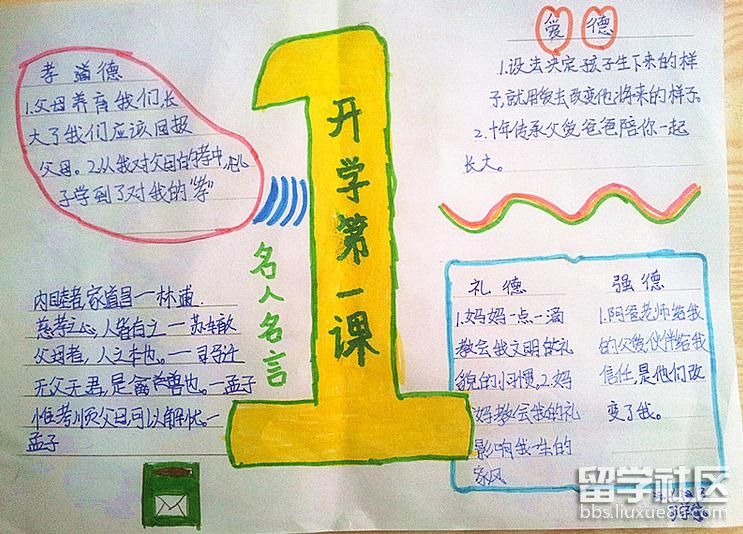 孝道德
1.父母养育我们长
大了我们应该回报
父母。2.从我对父母的孝中,
子学到了对我的“孝”
开学第一课
名人名言
内睦者,家道昌—林逋
慈孝之心,人皆有之—苏辙
父母者,人之本也。—司马迁
无父无君,是禽兽也。—孟子
惟孝顺父母,可以解忧。—
孟子
爱德
1.没法决定孩子生下来的样
子,就用爱去改变他将来的样子。
2.十年传承父爱,爸爸陪你一起
长大。
礼德
1.妈妈一点一滴
教会我文明的礼
貌的小习惯,2.妈
妈教会我的礼
影响我一生的
家风
强德
1.阿爸老师给我
的父爱伙伴给我
信任,是他们改
变了我。
留学社区
bbs.liuxue86.com